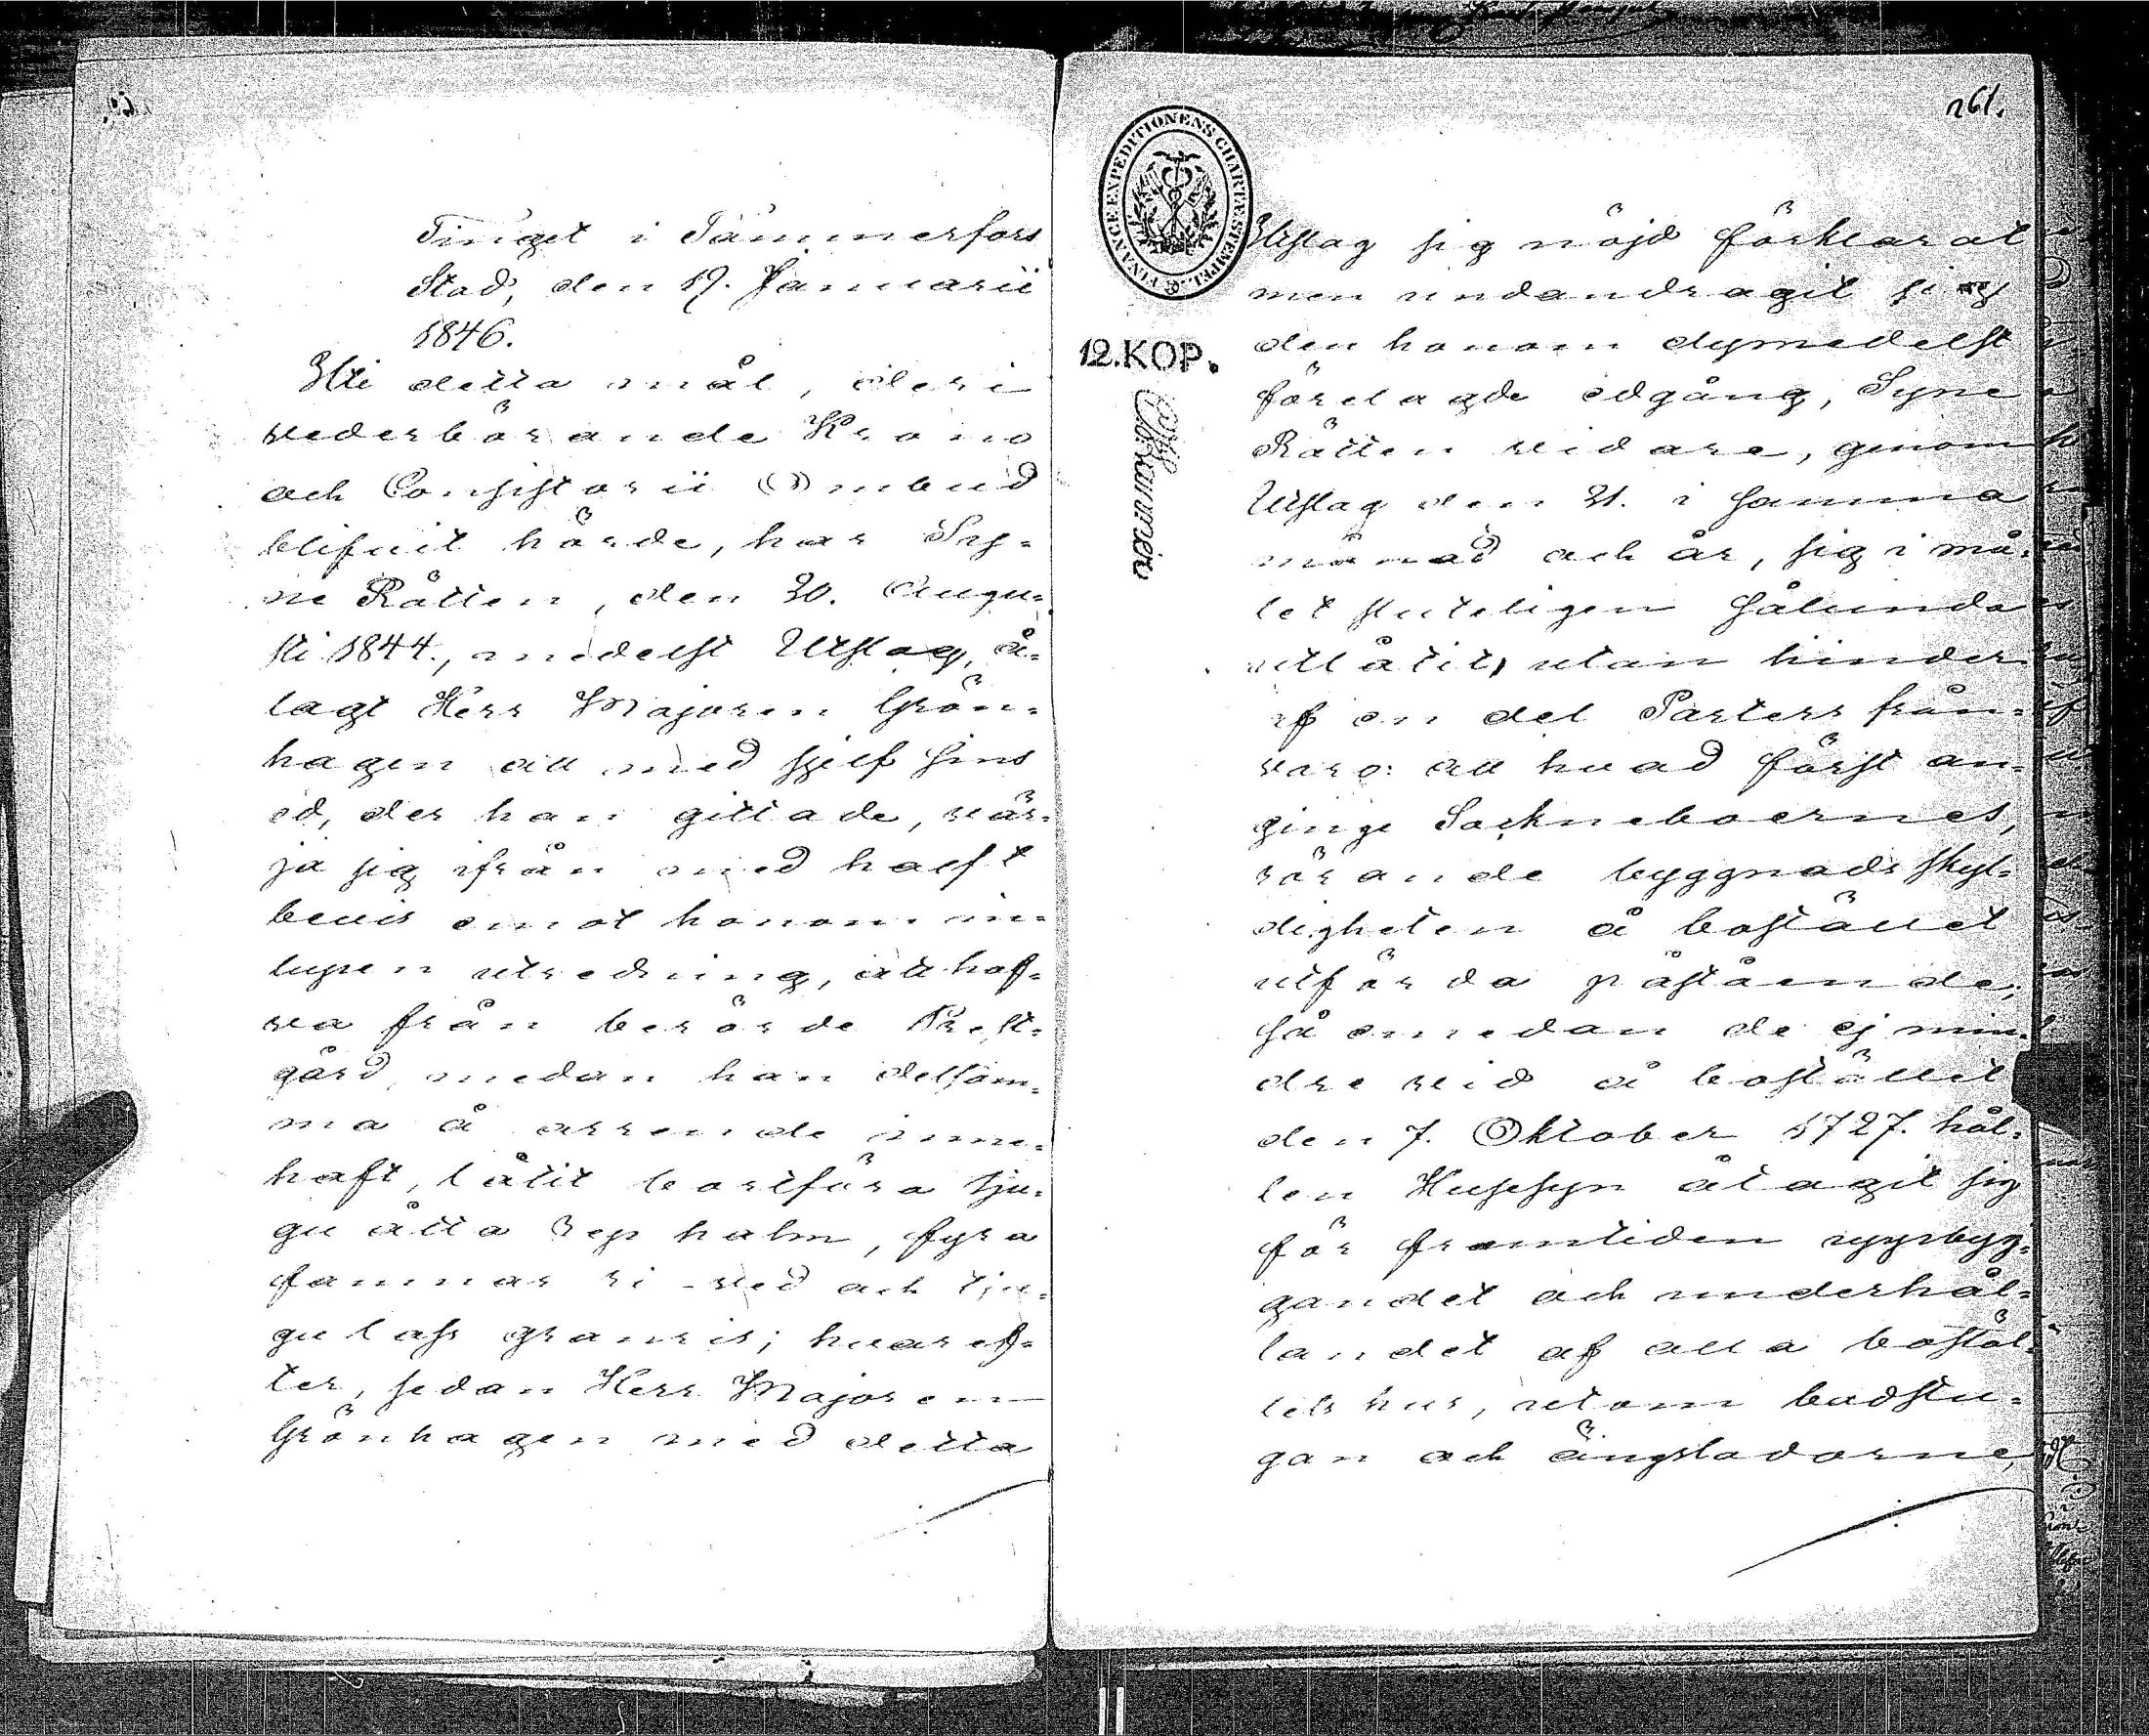 Tinget i Tammerfors
Stad, den 19. Januarii
1846.
Uti detta mål, deri
vederbörande Krono
och Consistorii Ombud
blifvit hörde, har Sy-
ne Rätten, den 30. Augu-
sti 1844., medelst Utslag, å-
lagt Herr Majoren Grön-
hagen att med sjelf sins
ed, der han gittade, vär-
ja sig ifrån med halft
bevis emot honom in-
lupen utredning, att haf-
va från berörde Prest-
gård, medan han detsam-
ma å arrende inne-
haft, låtit bortföra tju-
gu åtta rep halm, fyra
famnar ris-ved och tju-
gu lass granris; hvaref-
ter, sedan Herr Majoren
Grönhagen med detta
261.
FINANCE EXPEDITIONENS CHARTÆ STEMPEL.
12.KOP.
Utslag sig nöjd förklarat
men undandragit sig
den honom dymedelst
förelagde edgång, Syne
Rätten vidare, genom
Utslag den 31. i samma
månad och år, sig i må-
let slutligen sålunda
utlåtit, utan hinder
af en del Parters från-
varo: att hvad först an-
ginge Sockneboernes,
rörande byggnads skyl-
digheten å bostället
utförda påstående;
så emedan de ej min-
dre vid å bostället
den 7. Oktober 1727. hål-
len Hussyn åtagit sig
för framtiden uppbyg-
gandet och underhål-
landet af alla bostäl-
lets hus, utom badstu-
gan och ängsladorne,